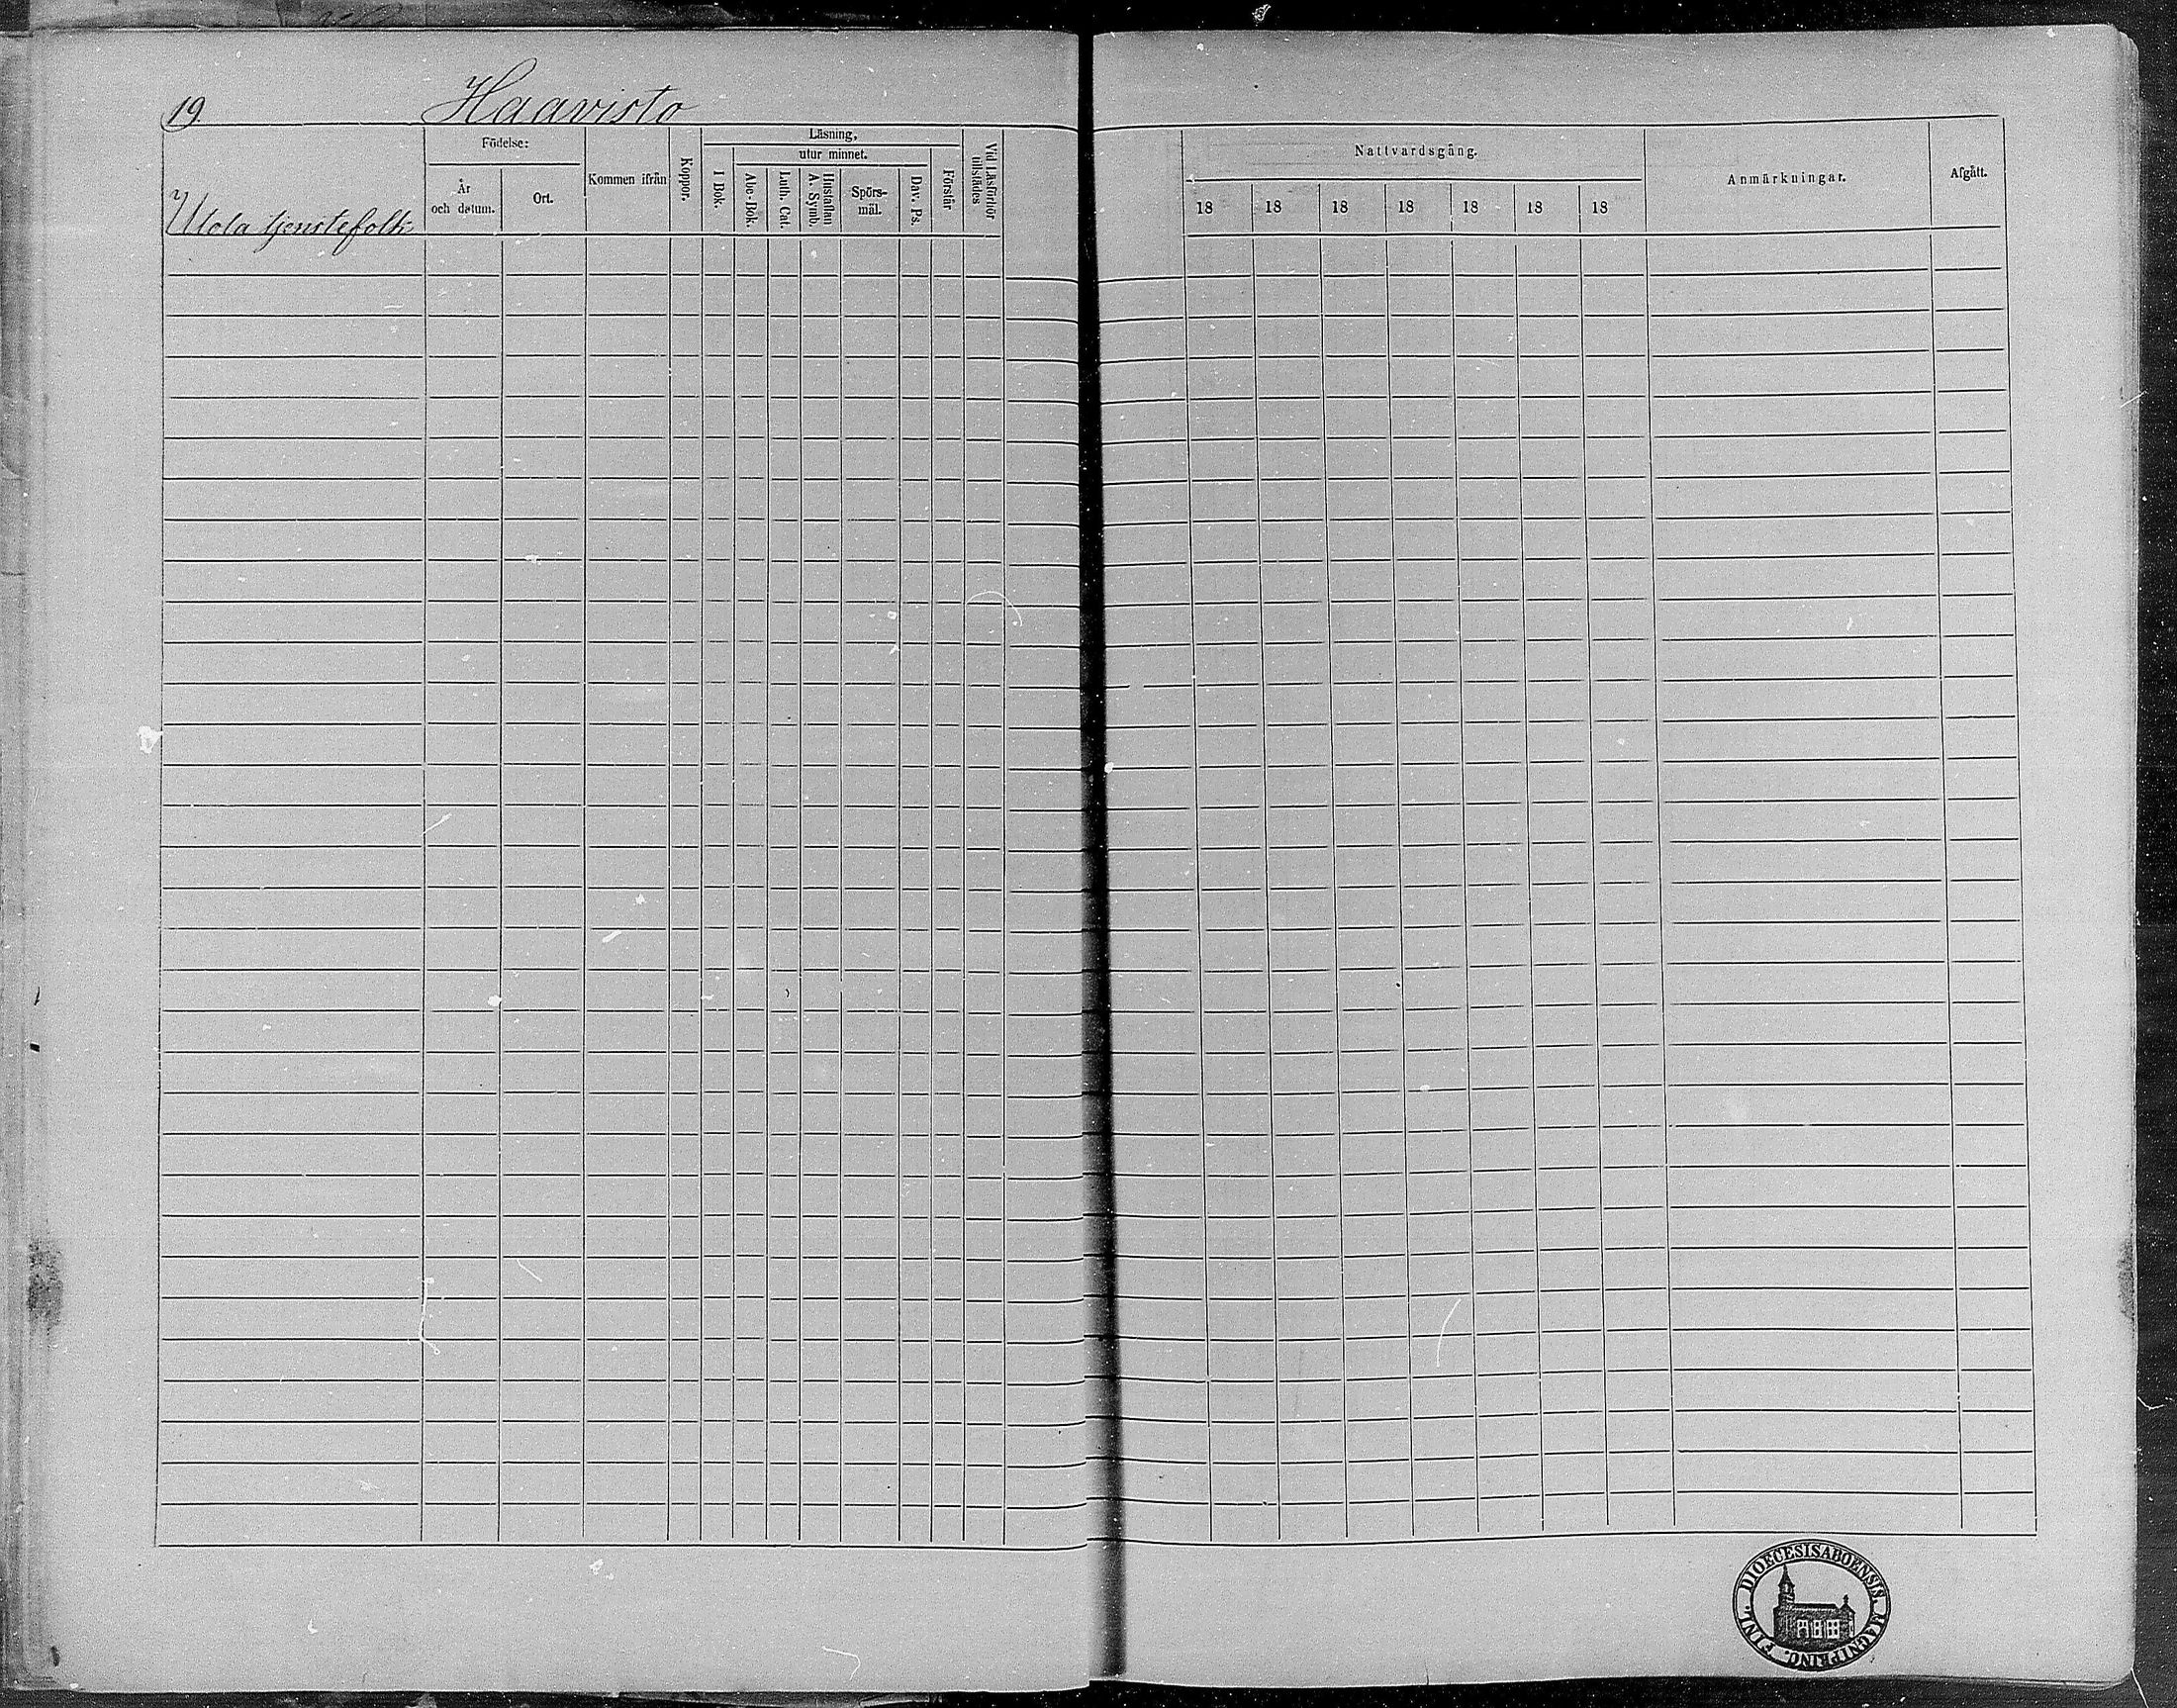 19.
Haavisto
Födelse:
År och datum.
Ort.
Kommen ifrån
Koppor.
Läsning,
utur minnet.
I Bok.
Abc-Bok.
Luth. Cat.
Hustaflan A. Symb.
Spörs-mål.
Dav. Ps.
Förstår
Vid Läsförhör tillstädes
Nattvardsgång.
18 18 18 18 18 18 18
Anmärkningar.
Afgått.
Ulola tjenstefolk
DIOECESIS ABOENSIS. MAGNI PRINC. FINL.